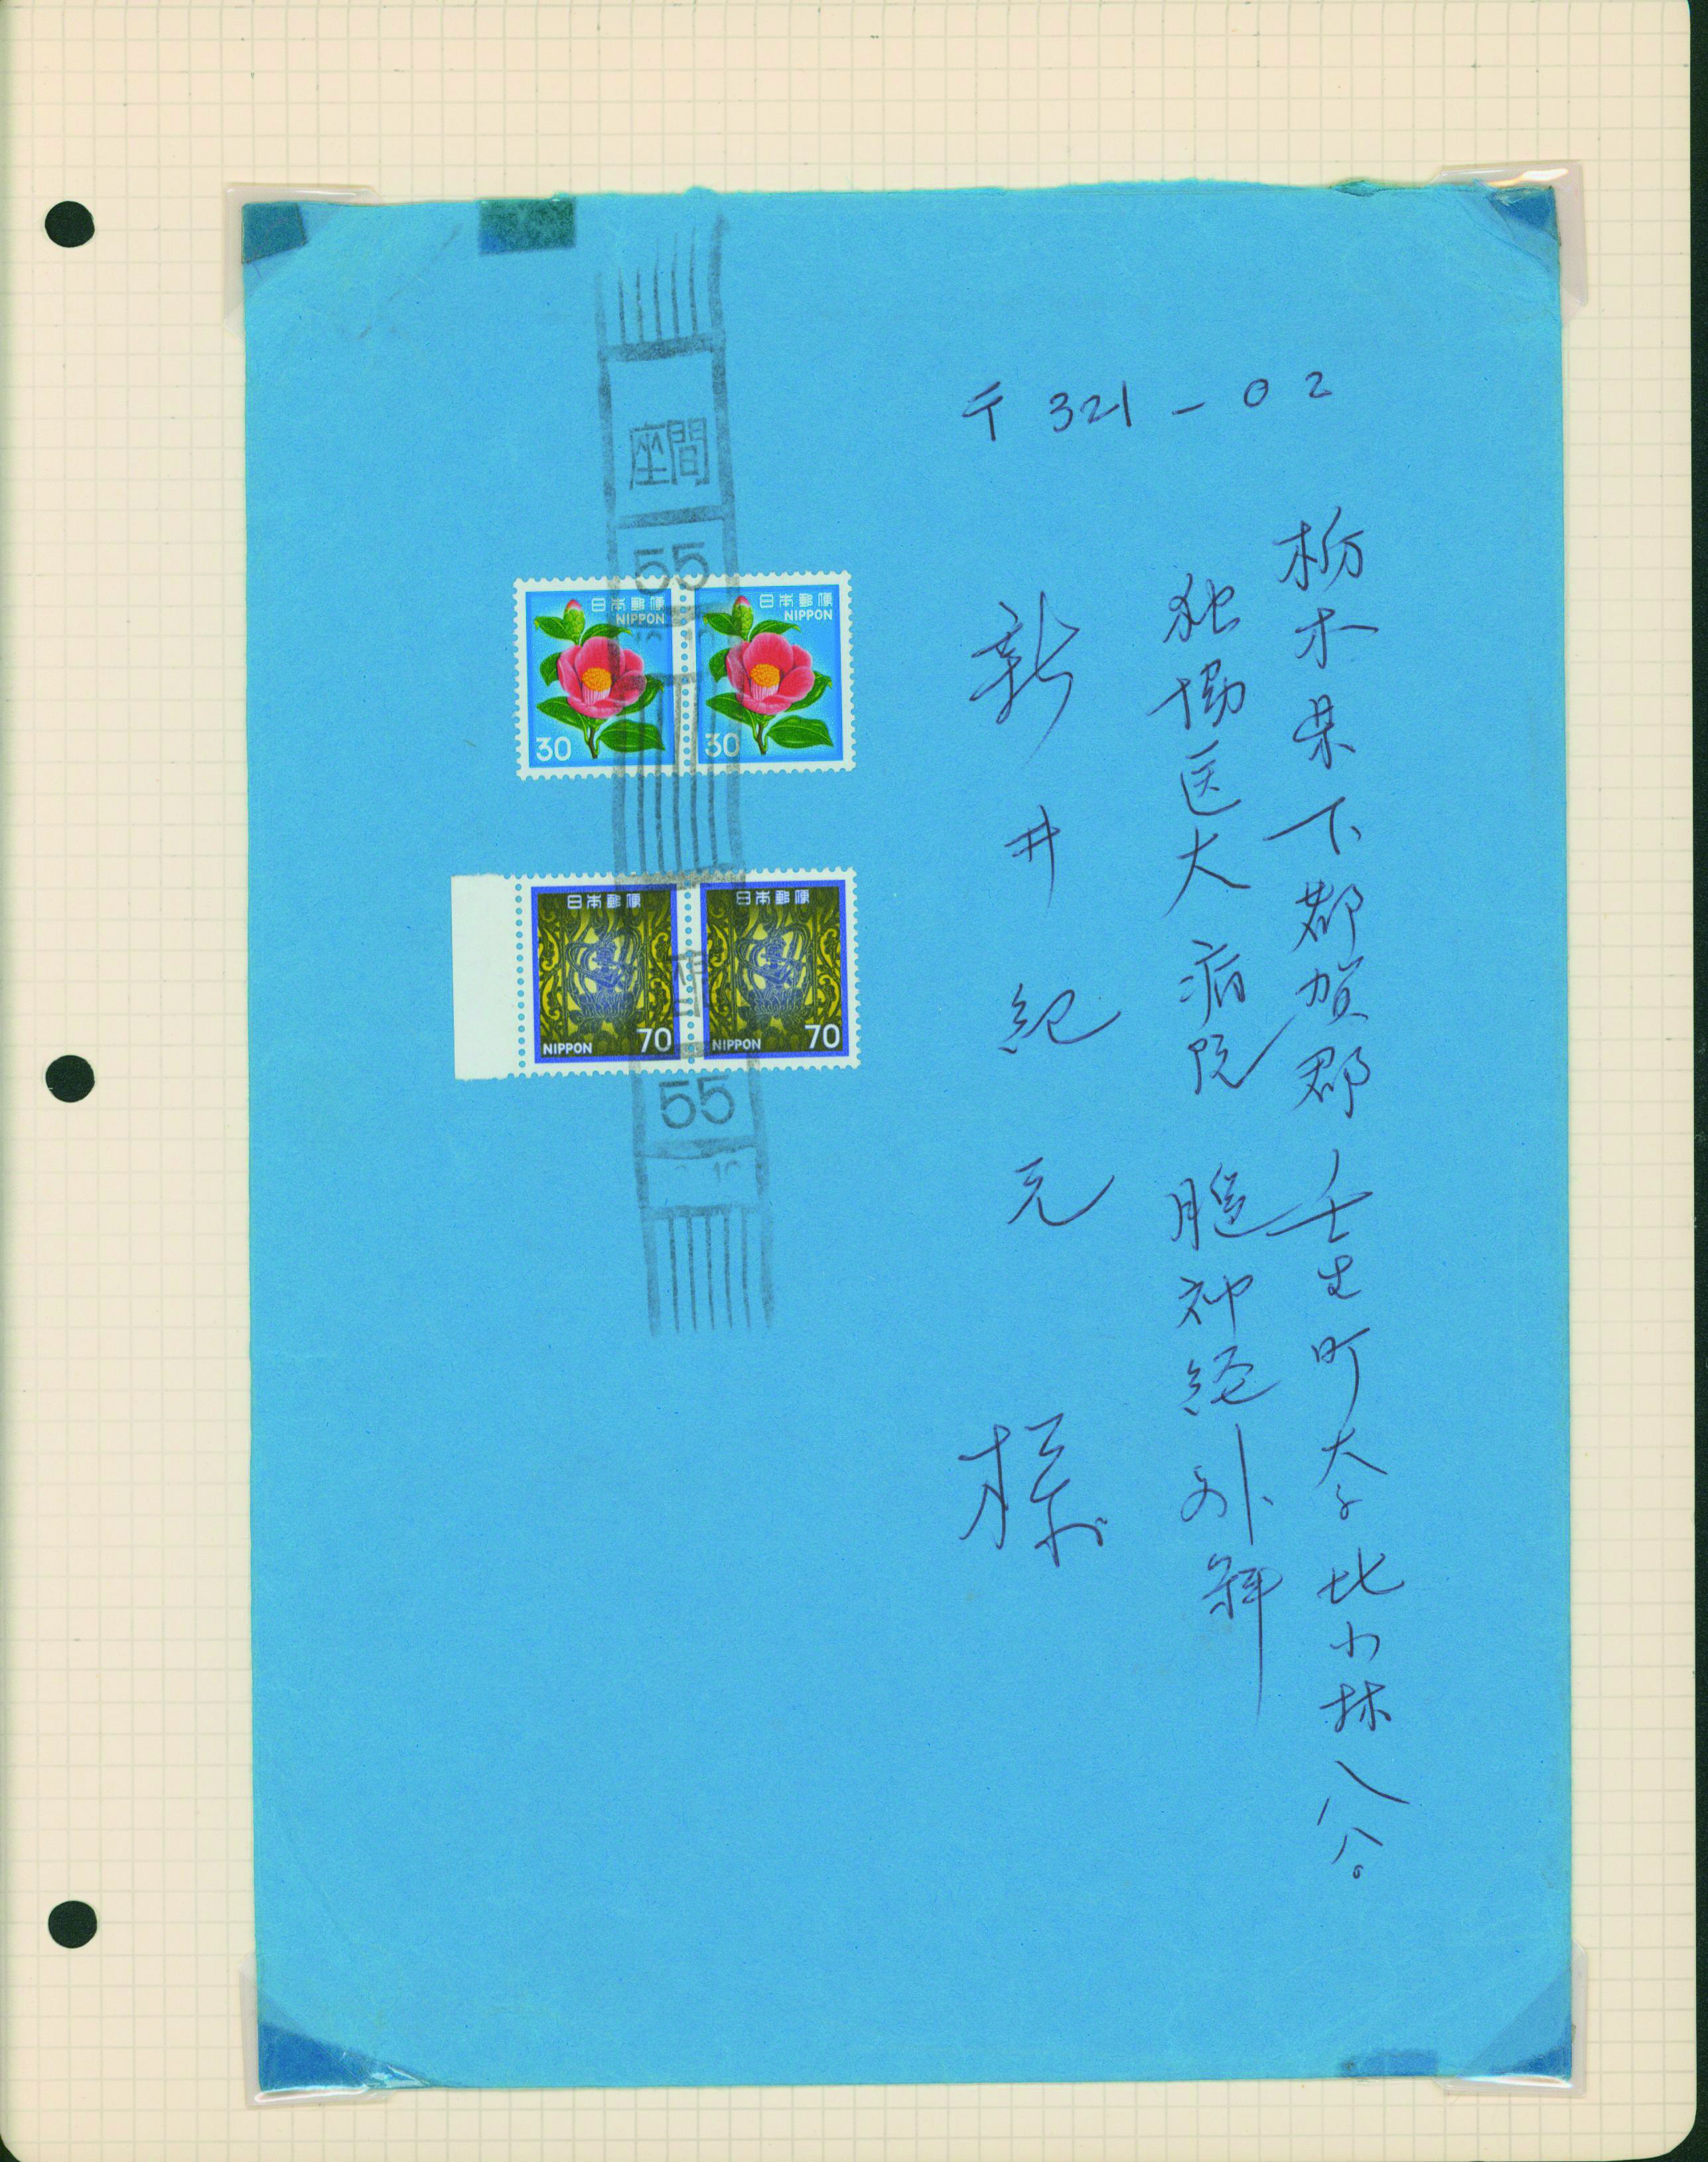 〒321-02
栃木県下都賀郡壬生町大字北小林八八〇
独協医大病院 脳神経外科
新井紀元様
座間
55
日本郵便
NIPPON
30
日本郵便
NIPPON
30
日本郵便
NIPPON
70
日本郵便
NIPPON
70
55